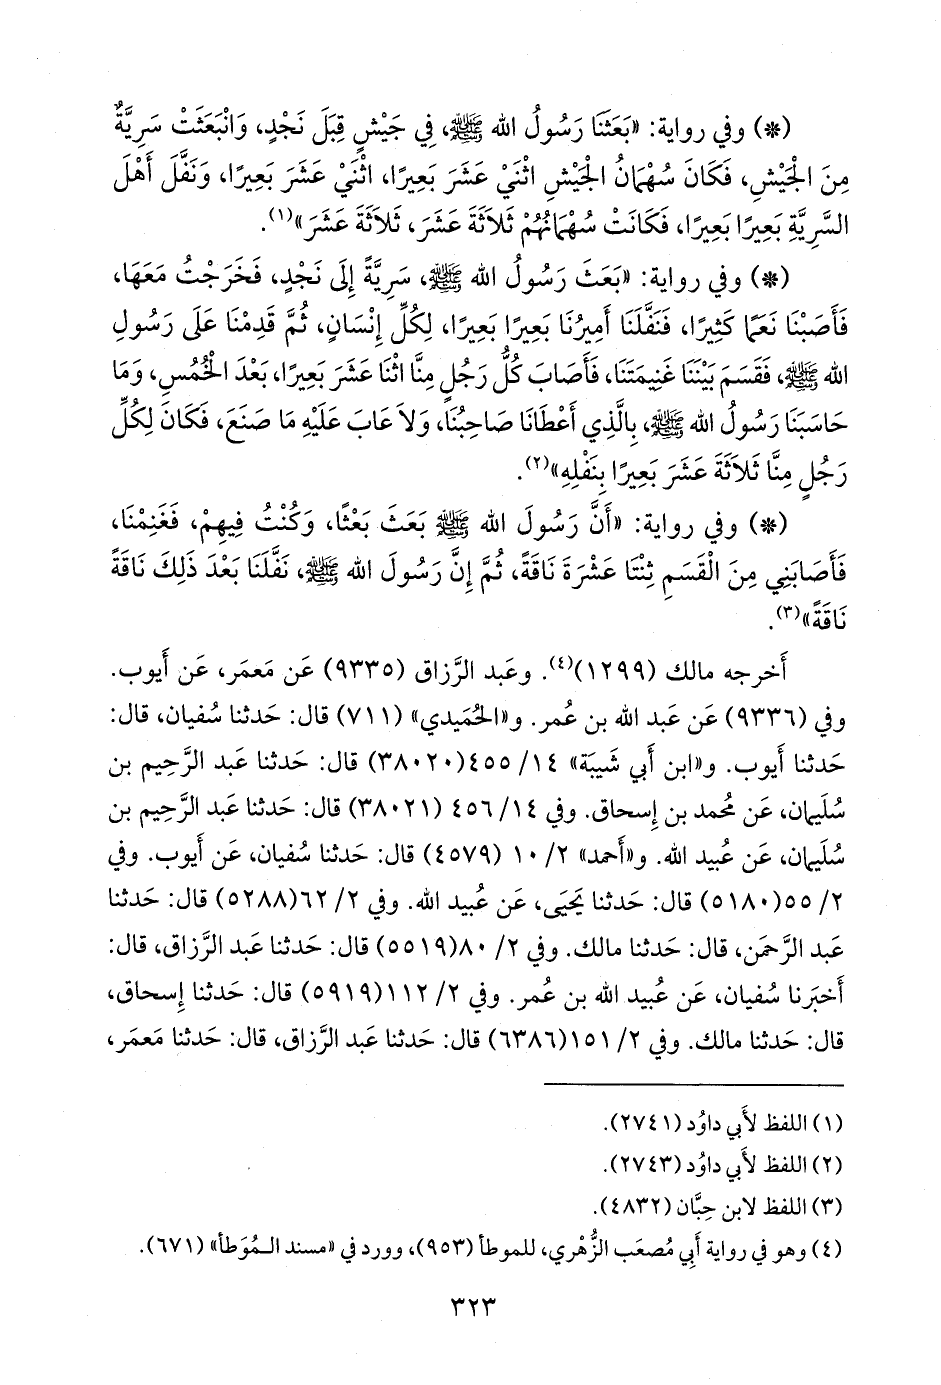 (*) وفي رواية: «بَعَثَنَا رَسُولُ الله ﷺ، فِي جَيْشٍ قِبَلَ نَجْدٍ، وَانْبَعَثَتْ سَرِيَّةٌ
مِنَ الْجَيْشِ، فَكَانَ سُهْمَانُ الْجَيْشِ اثْنَيْ عَشَرَ بَعِيرًا، اثْنَيْ عَشَرَ بَعِيرًا، وَنَفَّلَ أَهْلَ
السَّرِيَّةِ بَعِيرًا بَعِيرًا، فَكَانَتْ سُهْمَانُهُمْ ثَلاَثَةَ عَشَرَ، ثَلاَثَةَ عَشَرَ»(١).
(*) وفي رواية: «بَعَثَ رَسُولُ الله ﷺ، سَرِيَّةً إِلَى نَجْدٍ، فَخَرَجْتُ مَعَهَا،
فَأَصَبْنَا نَعَمًا كَثِيرًا، فَنَفَّلَنَا أَمِيرُنَا بَعِيرًا بَعِيرًا، لِكُلِّ إِنْسَانٍ، ثُمَّ قَدِمْنَا عَلَى رَسُولِ
الله ﷺ، فَقَسَمَ بَيْنَنَا غَنِيمَتَنَا، فَأَصَابَ كُلُّ رَجُلٍ مِنَّا اثْنَا عَشَرَ بَعِيرًا، بَعْدَ الْخُمُسِ، وَمَا
حَاسَبَنَا رَسُولُ الله ﷺ، بِالَّذِي أَعْطَانَا صَاحِبُنَا، وَلاَ عَابَ عَلَيْهِ مَا صَنَعَ، فَكَانَ لِكُلِّ
رَجُلٍ مِنَّا ثَلاَثَةَ عَشَرَ بَعِيرًا بِنَفْلِهِ»(٢).
(*) وفي رواية: «أَنَّ رَسُولَ الله ﷺ بَعَثَ بَعْثًا، وَكُنْتُ فِيهِمْ، فَغَنِمْنَا،
فَأَصَابَنِي مِنَ الْقَسَمِ ثِنْتَا عَشْرَةَ نَاقَةً، ثُمَّ إِنَّ رَسُولَ الله ﷺ، نَفَّلَنَا بَعْدَ ذَلِكَ نَاقَةً
نَاقَةً»(٣).
أَخرجه مالك (١٢٩٩)(٤). وعَبد الرَّزاق (٩٣٣٥) عَن مَعمَر، عَن أَيوب.
وفي (٩٣٣٦) عَن عَبد الله بن عُمر. و«الحُمَيدي» (٧١١) قال: حَدثنا سُفيان، قال:
حَدثنا أَيوب. و«ابن أَبي شَيبَة» ١٤/ ٤٥٥(٣٨٠٢٠) قال: حَدثنا عَبد الرَّحِيم بن
سُلَيمان، عَن مُحمد بن إِسحاق. وفي ١٤/ ٤٥٦ (٣٨٠٢١) قال: حَدثنا عَبد الرَّحِيم بن
سُلَيمان، عَن عُبيد الله. و«أَحمد» ٢/ ١٠ (٤٥٧٩) قال: حَدثنا سُفيان، عَن أَيوب. وفي
٢/ ٥٥(٥١٨٠) قال: حَدثنا يَحيَى، عَن عُبيد الله. وفي ٢/ ٦٢(٥٢٨٨) قال: حَدثنا
عَبد الرَّحمَن، قال: حَدثنا مالك. وفي ٢/ ٨٠(٥٥١٩) قال: حَدثنا عَبد الرَّزاق، قال:
أَخبَرنا سُفيان، عَن عُبيد الله بن عُمر. وفي ٢/ ١١٢(٥٩١٩) قال: حَدثنا إِسحاق،
قال: حَدثنا مالك. وفي ٢/ ١٥١(٦٣٨٦) قال: حَدثنا عَبد الرَّزاق، قال: حَدثنا مَعمَر،
(١) اللفظ لأَبي داوُد (٢٧٤١).
(٢) اللفظ لأَبي داوُد (٢٧٤٣).
(٣) اللفظ لابن حِبَّان (٤٨٣٢).
(٤) وهو في رواية أَبِي مُصعَب الزُّهْري، للموطأ (٩٥٣)، وورد في «مسند الـمُوَطأ» (٦٧١).
٣٢٣